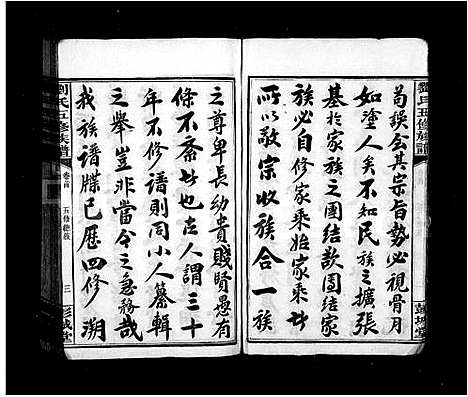 苟誤會其宗旨勢必視骨月
如塗人矣不知民族之擴張
基於家族之團結欲團結家
族必自修家乘始家乘者
所以敬宗收族合一族
之尊卑長幼貴賤賢愚有
條不紊者也古人謂三十
年不修譜則同小人纂輯
之舉豈非當今之急務哉
我族譜牒已歷四修溯
劉氏五修族譜
卷首
三
彭城堂